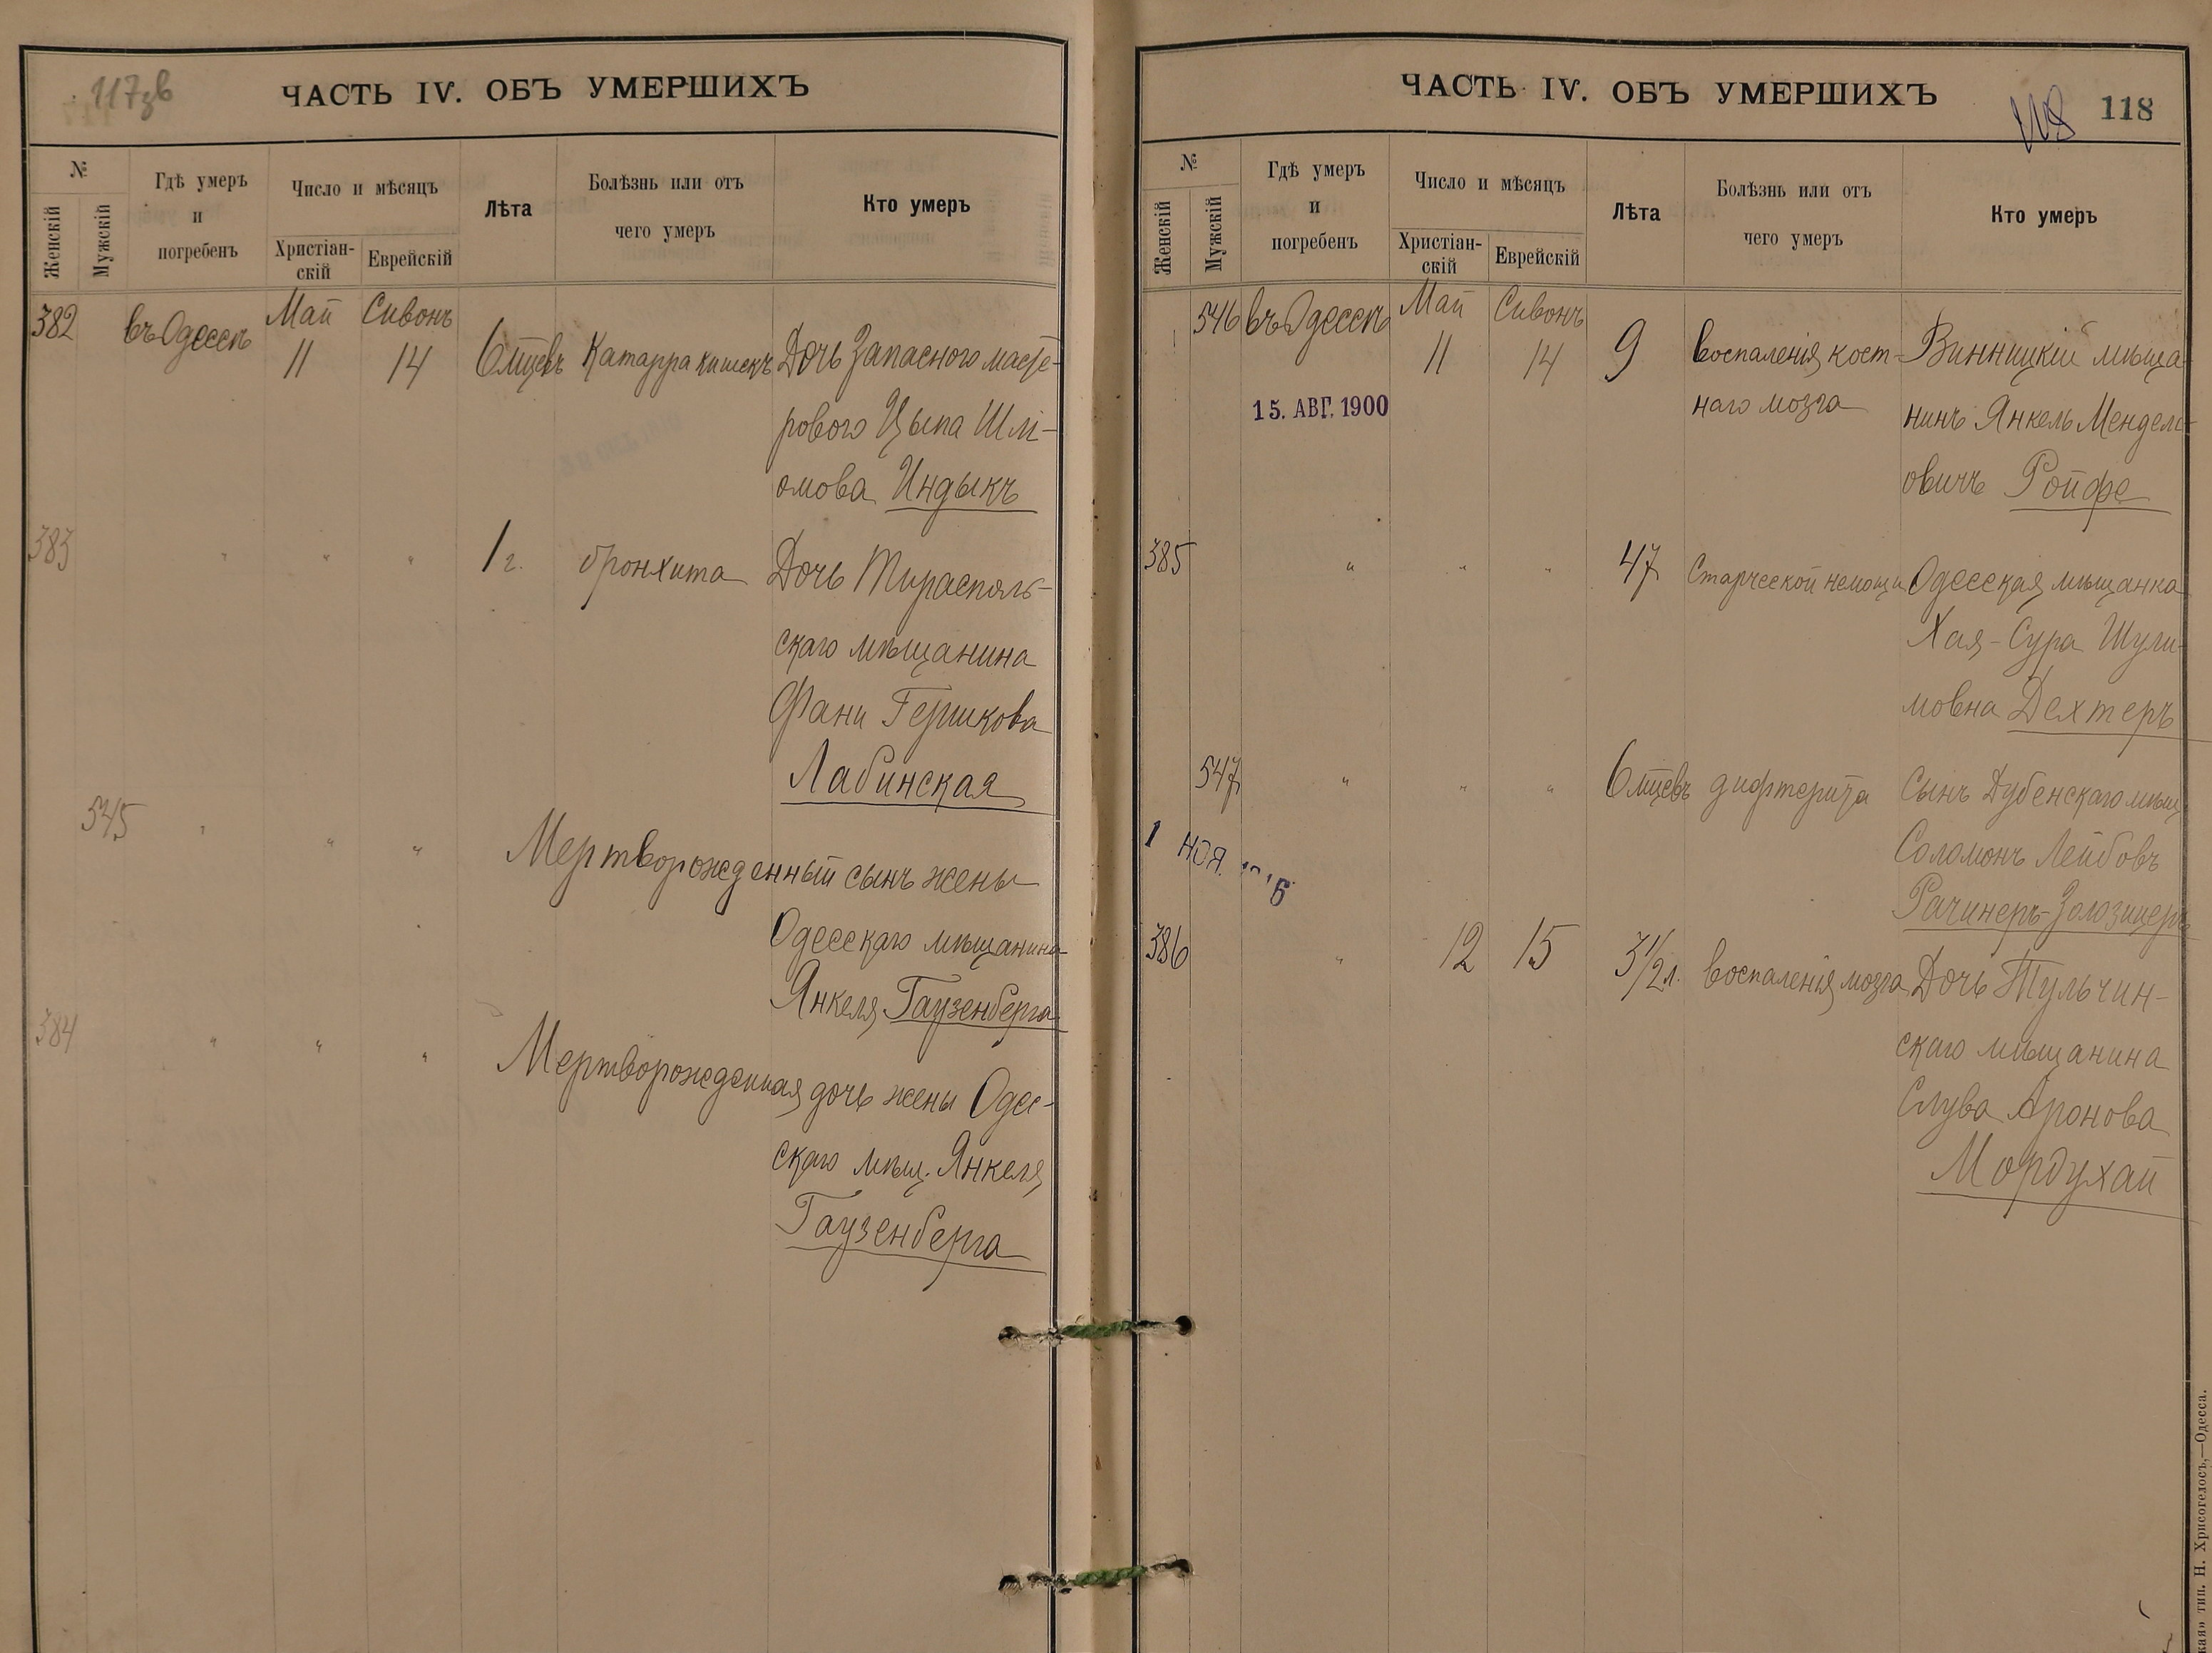 117зв
ЧАСТЬ IV. ОБЪ УМЕРШИХЪ
№
Женскій
Мужскій
Гдѣ умеръ
и
погребенъ
Число и мѣсяцъ
Христіан-
скій
Еврейскій
Лѣта
Болѣзнь или отъ
чего умеръ
Кто умеръ
382 въ Одессѣ Май 11 Сивонъ 14 6 мцевъ Катарра кишекъ Дочь Запасного масте-
рового Цыпа Шлі-
омова Индыкъ
383 " " " 1 г. бронхита Дочь Тирасполь-
скаго мѣщанина
Фани Гершкова
Лабинская
545 " " " Мертворожденный сынъ жены
Одесскаго мѣщанина
Янкеля Гаузенберга
384 " " " Мертворожденная дочь жены Одес-
скаго мѣщ. Янкеля
Гаузенберга
ЧАСТЬ IV. ОБЪ УМЕРШИХЪ
118 118
№
Женскій
Мужскій
Гдѣ умеръ
и
погребенъ
Число и мѣсяцъ
Христіан-
скій
Еврейскій
Лѣта
Болѣзнь или отъ
чего умеръ
Кто умеръ
546 въ Одессѣ Май 11 Сивонъ 14 9 воспаленія кост- Винницкій мѣща-
15. АВГ. 1900 наго мозга нинъ Янкель Мендел-
овичъ Ройфе
385 " " " 47 Старческой немощи Одесская мѣщанка
Хая-Сура Шули-
мовна Дехтеръ
547 " " " 6 мцевъ дифтерита Сынъ Дубенскаго мѣщ.
1 НОЯ. Соломонъ Лейбовъ
Рачинеръ-
386 " 12 15 3 1/2 л. воспаленія мозга Дочь Тульчин-
скаго мѣщанина
Слува Аронова
Мордухай
тип. Н. Хрисогелосъ,—Одесса.